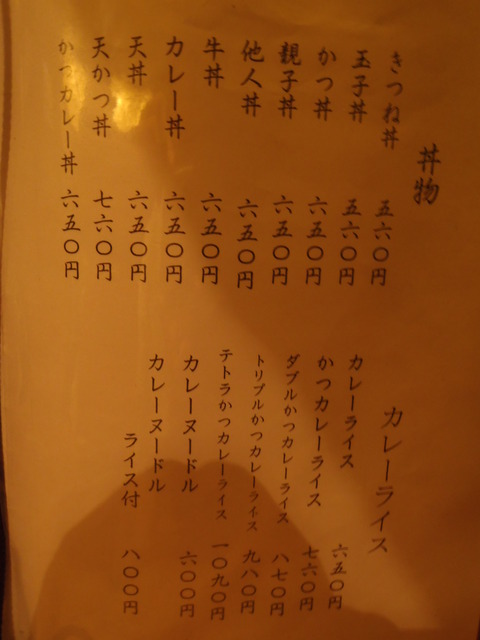 丼物
きつね丼 五六〇円
玉子丼 五六〇円
かつ丼 六五〇円
親子丼 六五〇円
他人丼 六五〇円
牛丼 六五〇円
カレー丼 六五〇円
天丼 六五〇円
天かつ丼 七六〇円
かつカレー丼 六五〇円
カレーライス
カレーライス 六五〇円
かつカレーライス 七六〇円
ダブルかつカレーライス 八七〇円
トリプルかつカレーライス 九八〇円
テトラかつカレーライス 一〇九〇円
カレーヌードル 六〇〇円
カレーヌードル
ライス付 八〇〇円